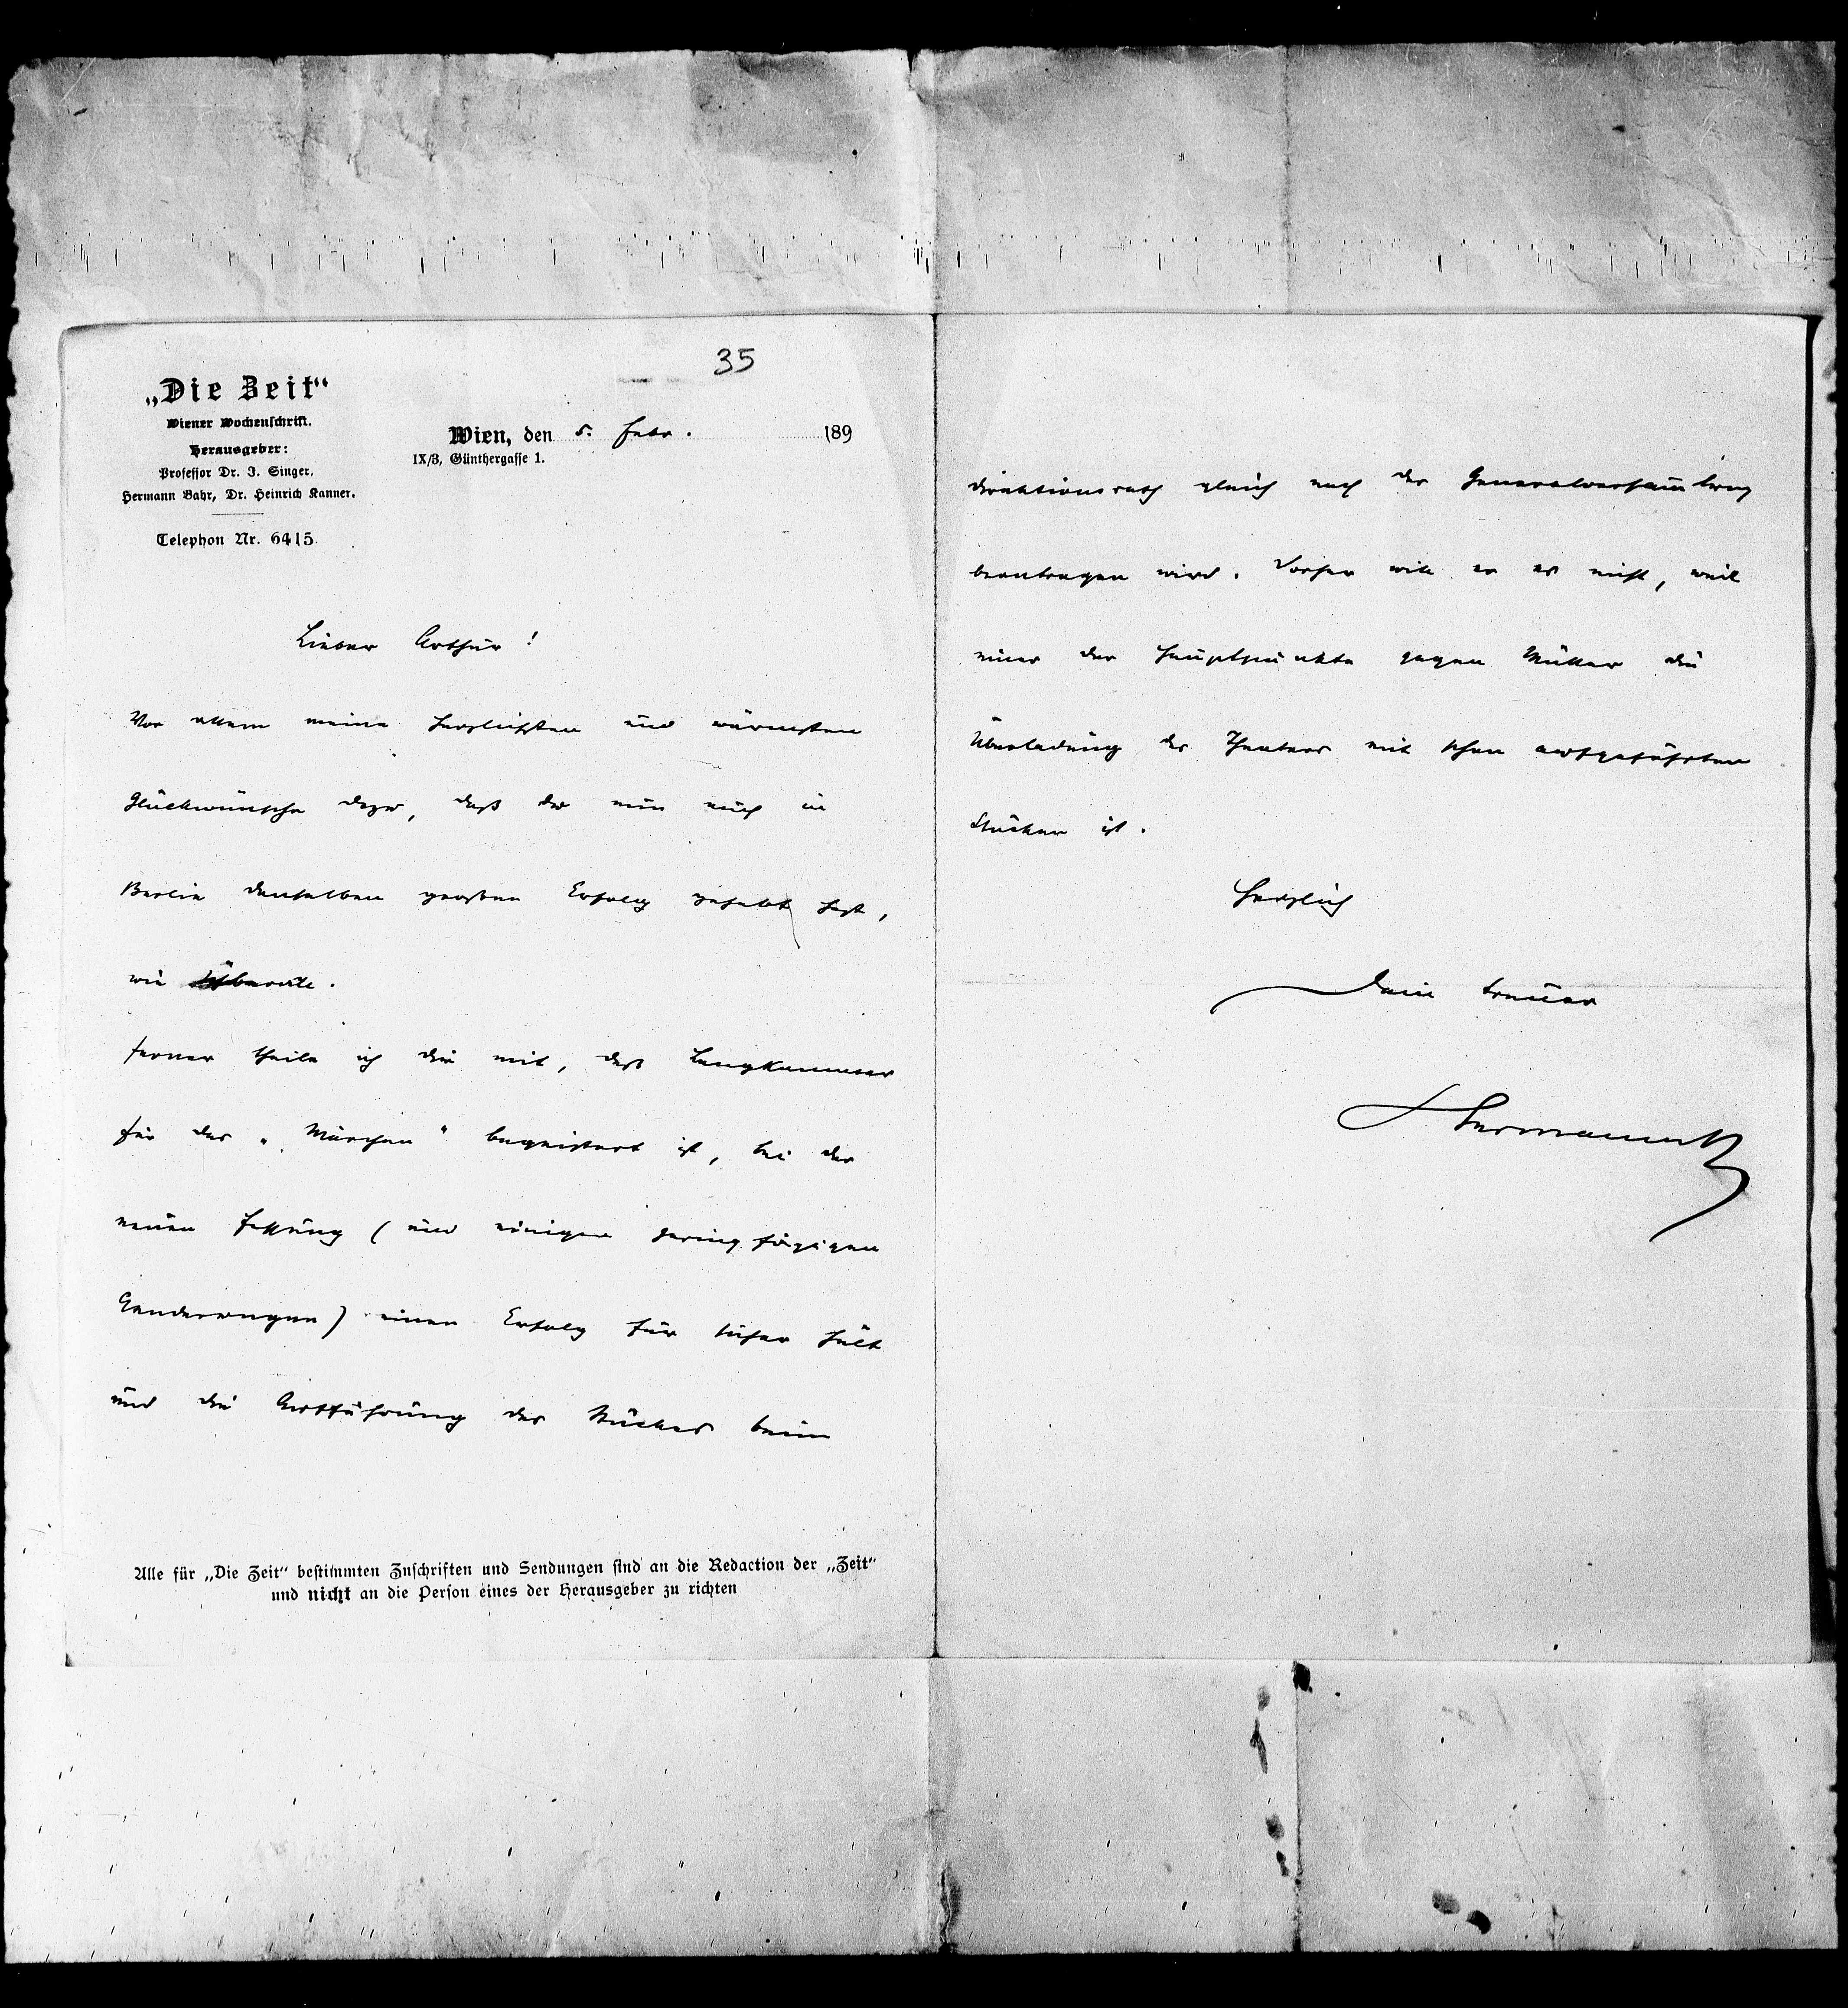 35
„Die Zeit“
Wiener Wochenschrift.
Herausgeber:
Professor Dr. J. Singer,
Hermann Bahr, Dr. Heinrich Kanner.
Telephon Nr. 6415.
Wien, den 5. Febr. 189
IX/3, Günthergasse 1.
Lieber Arthur!
Vor allem meine herzlichsten und wärmsten
Glückwünsche dazu, daß du nun auch in
Berlin denselben großen Erfolg gehabt hast,
wie überall.
Ferner theile ich dir mit, daß Langkammer
für das „Märchen“ begeistert ist, bei der
neuen Fassung (und einigen geringfügigen
Aenderungen) einen Erfolg für sicher hält
und die Aufführung des Stückes beim
Alle für „Die Zeit“ bestimmten Zuschriften und Sendungen sind an die Redaction der „Zeit“
und nicht an die Person eines der Herausgeber zu richten
Direktionsrath gleich nach der Generalversam̅lung
beantragen wird. Vorher will er es nicht, weil
einer der Hauptpunkte gegen Müller die
Überladung des Theaters mit schon aufgeführten
Stücken ist.
Herzlich
Dein treuer
Hermann